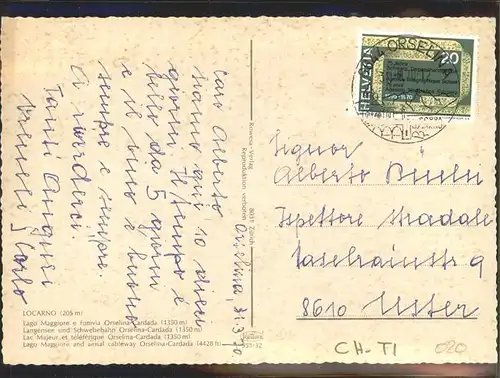 Orselina, 31.3.70
Caro Alberto,
siamo qui 10 dieci
giorni. Il tempo è
bello da 5 giorni
e il vino è buono
sempre e sempre.
A
Tanti Auguri
Carlo
LOCARNO (205 m)
Lago Maggiore e funivia Orselina-Cardada (1350 m)
Langensee und Schwebebahn Orselina-Cardada (1350 m)
Lac Majeur et téléférique Orselina-Cardada (1350 m)
Lago Maggiore and aerial cableway Orselina-Cardada (4428 ft)
Reproduktion verboten
8031 Zürich
HELVETIA
20
ORSELINA
Signor
Alberto
Ispettore stradale
8610 Uster
CH-TI
020